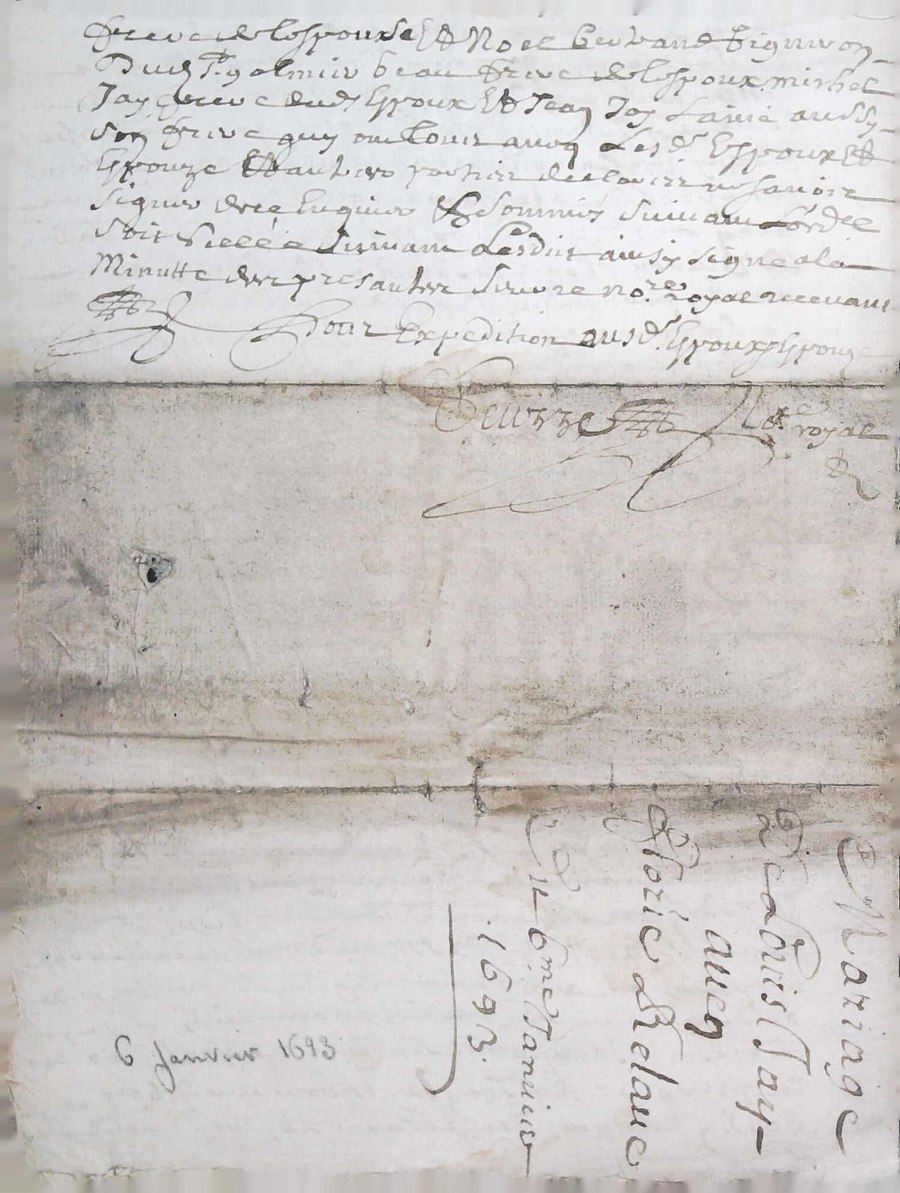 frere de lespouse Et Noel bertrand vigneron
Dud St galmier beau frere de lespoux michel
Jay frere dud Espoux Et Jean Jay Laine aussy
son frere quy ont tous avecq Lesd. Espoux Et
Espouze Et autres parties declaire ne scavoir
signer de ce Enquis Et sommes suivant Lord.
soit scelle suivant Lesdit ainsy signe a la
Minutte des presantes not.re royal recevant
Pour Expedition ausd. Espoux Espouze
Not.re royal
Mariage
De Louis Jay
avecq
Florie
Du 6me Janvier
1693.
6 Janvier 1693